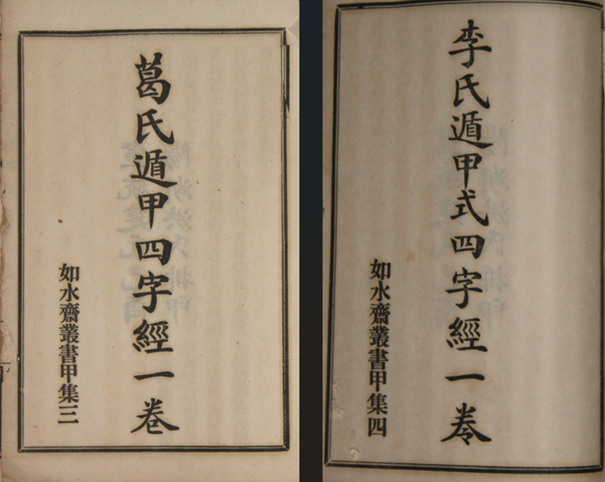 葛氏遁甲四字經一卷
如水齋叢書甲集三
李氏遁甲式四字經一卷
如水齋叢書甲集四